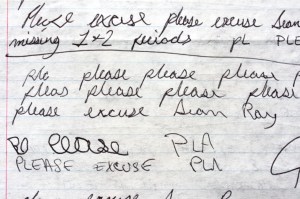 Please excuse please excuse Sean
missing 1+2 periods pl PLE
ple please please please p
pleas please please please
please excuse Sean Ray
Pl Please PLA
PLEASE EXCUSE PLA